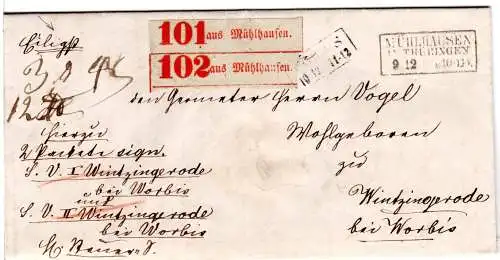 Eiligst
101 aus Mühlhausen.
102 aus Mühlhausen.
10 12 11-12
MÜHLHAUSEN
IN THÜRINGEN
9 12
den Geometer Herrn Vogel
Wohlgeboren
zu
Wintzingerode
bei Worbis
hierzu
2 Packete sign.
S. V. I Wintzingerode
bei Worbis
und
S. V. II Wintzingerode
bei Worbis